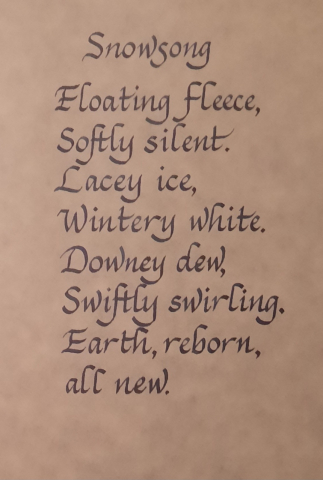 Snowsong
Floating fleece,
Softly silent.
Lacey ice,
Wintery white.
Downey dew,
Swiftly swirling.
Earth, reborn,
all new.